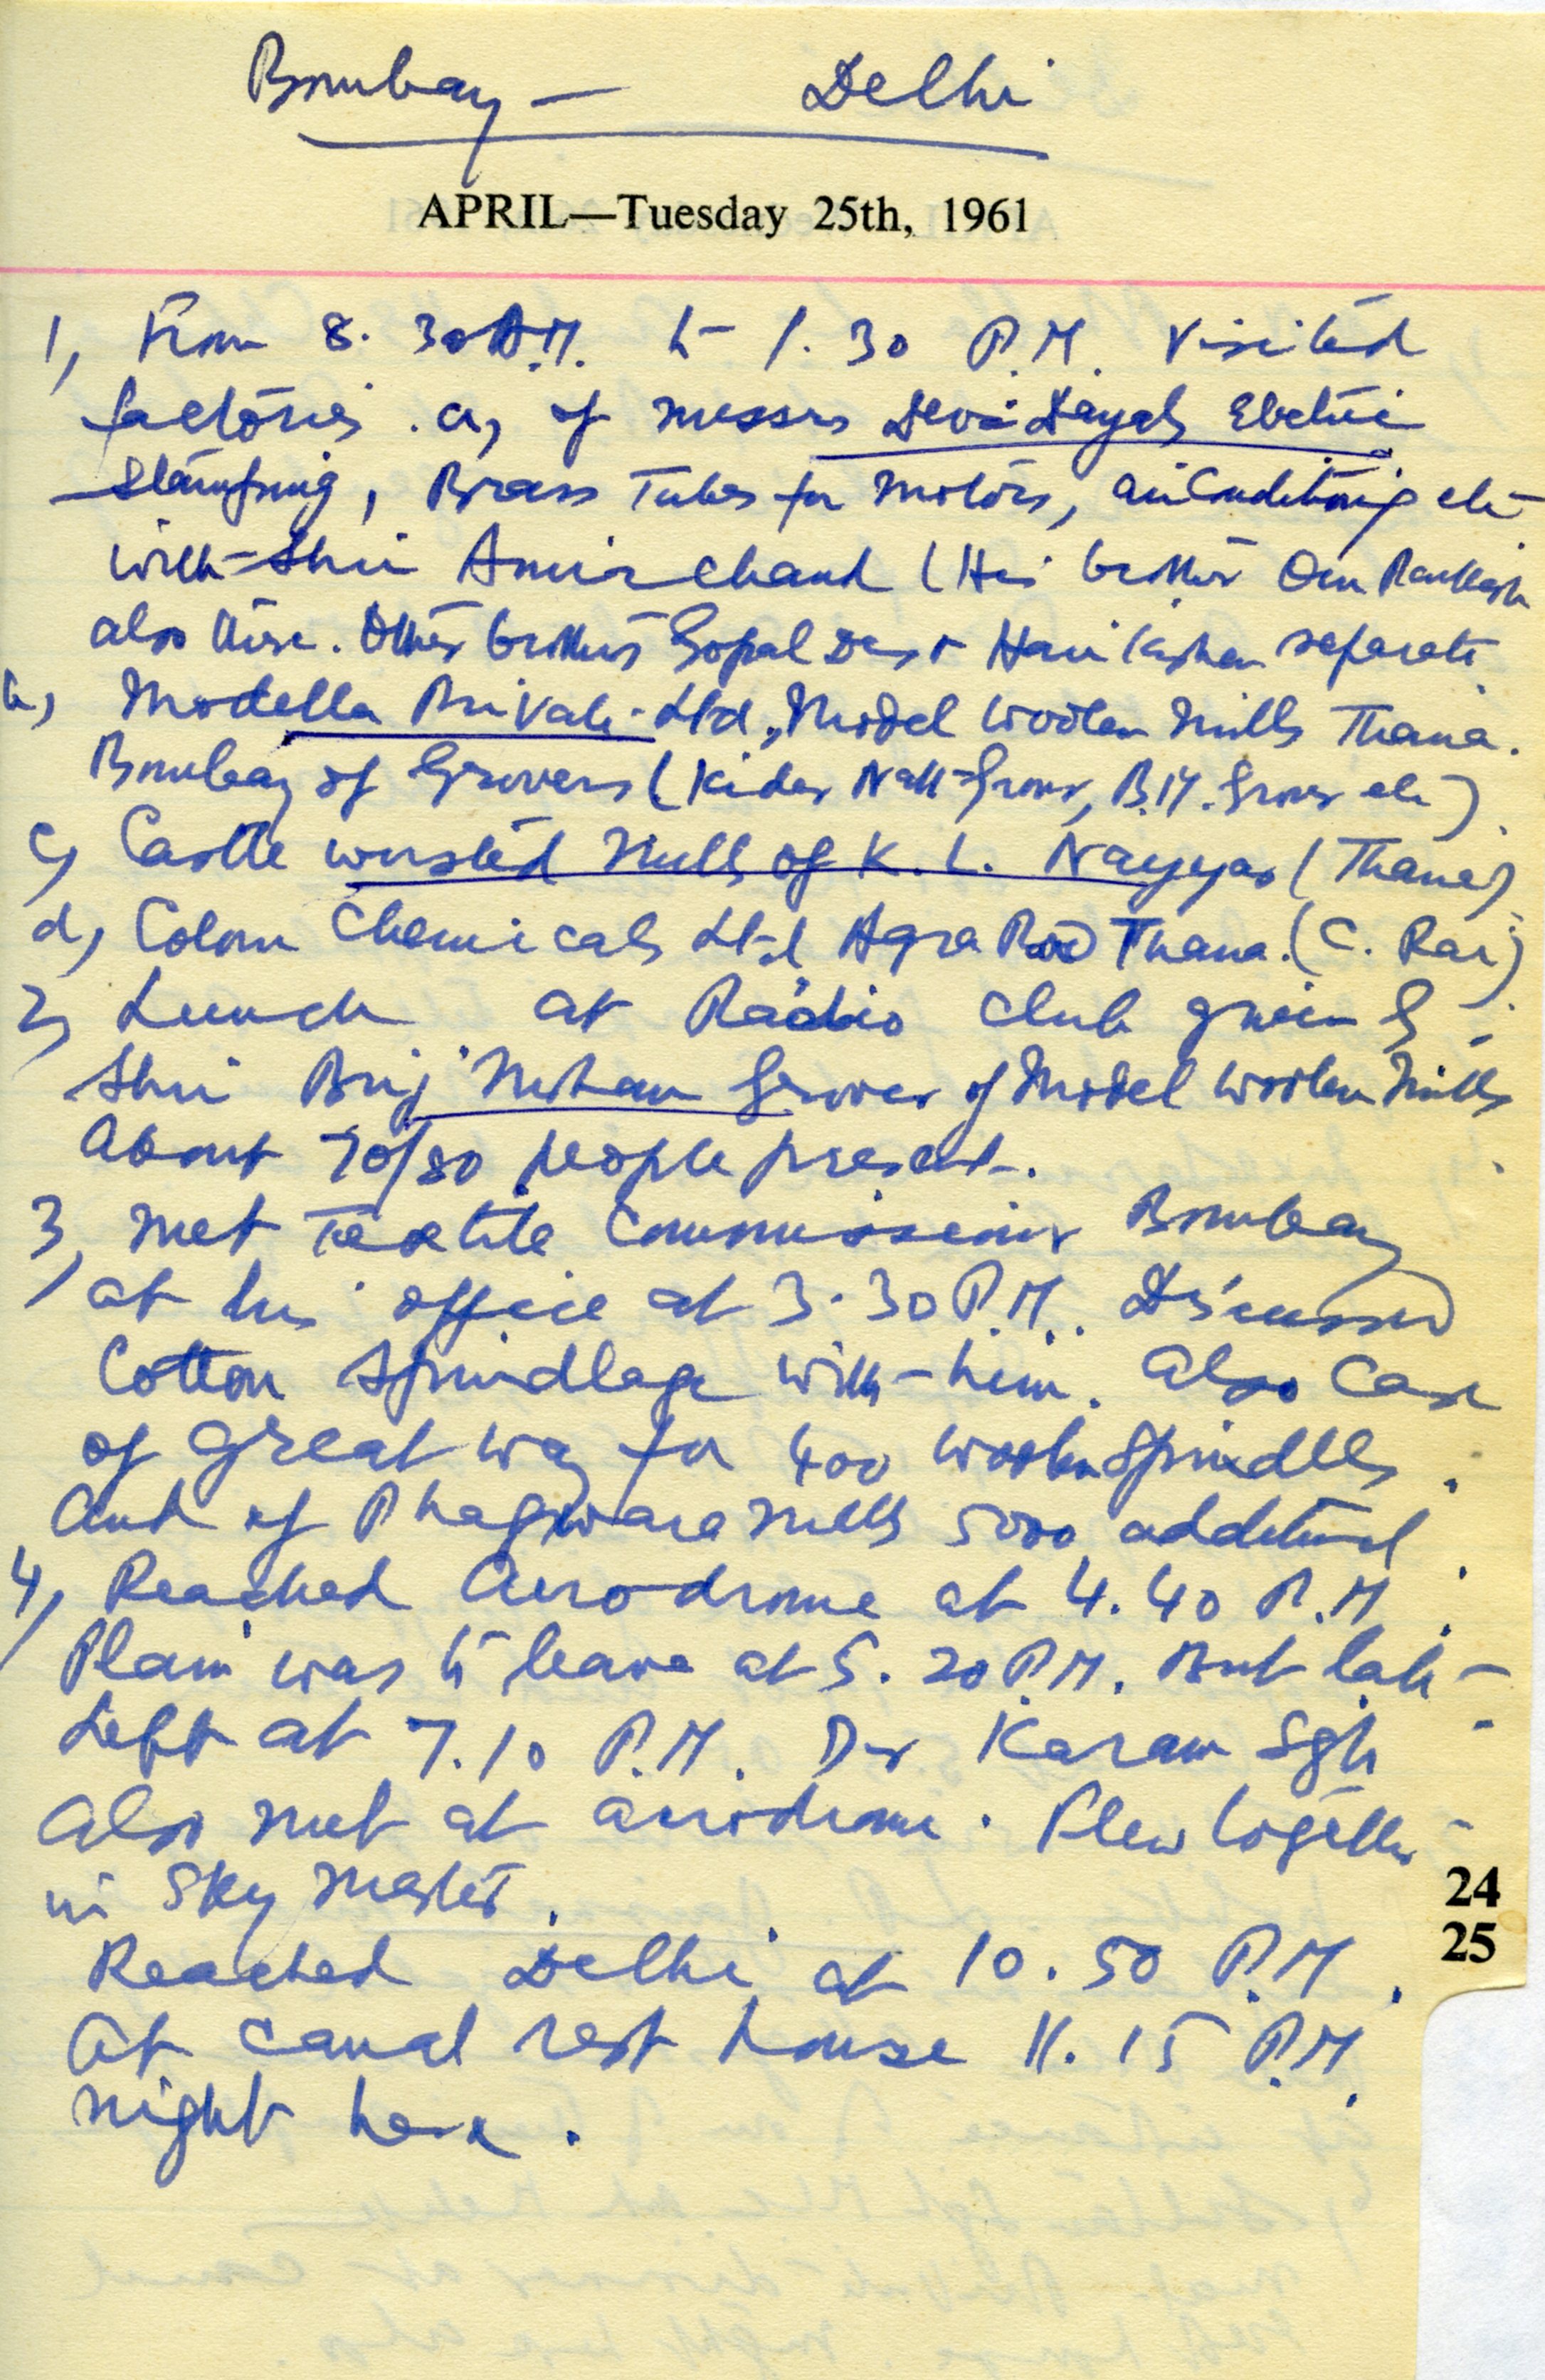 Bombay — Delhi
APRIL—Tuesday 25th, 1961
1, From 8.30 A.M. to 1.30 P.M. Visited
factories. a, of messrs Devi Dayals Electric
Stamping, Brass Tubes for Motors, airconditioning etc
with Shri Amirchand (His brother Om Parkash
also there. Other brothers Gopal Das + Harikishan separate
b, Modella Private Ltd, Model Woolen Mills Thana.
Bombay of Grovers (Kidar Nath Grover, B.M. Grover etc).
c, Castle worsted Mills of K. L. Nayyar (Thana)
d, Colour Chemicals Ltd Agra Road Thana. (C. Rai)
2, Lunch at Radio Club given by
Shri Brij Mohan Grover of Model Woolen Mills
About 70/80 people present.
3, Met Textile Commissioner Bombay
at his office at 3.30 P.M. Discussed
Cotton Spindlage with him. Also Case
of Great way for 400 woolen Spindles.
And of Phagwara Mills 5000 additional.
4, Reached Aerodrome at 4.40 P.M.
Plane was to leave at 5.20 P.M. But late
Left at 7.10 P.M. Dr Karam Sgh
Also met at aerodrome. Flew together
in Sky Master.
24
Reached Delhi at 10.50 P.M.
25
At canal rest house 11.15 P.M.
night here.